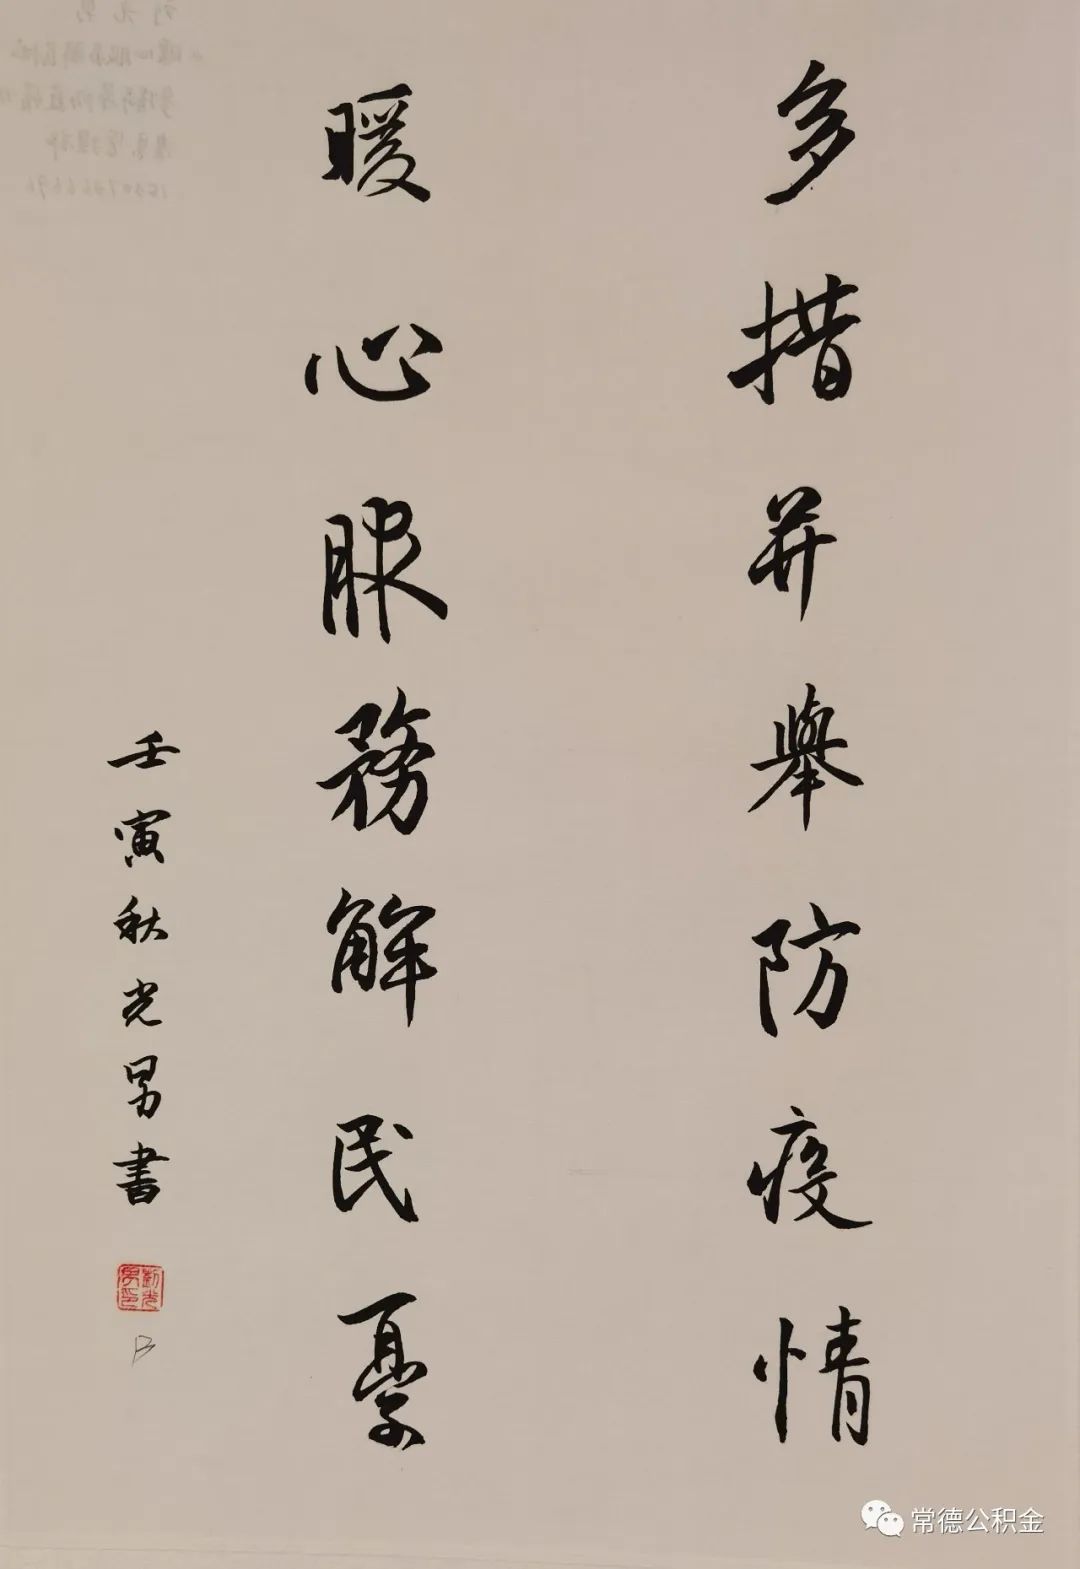 多措并舉防疫情
暖心服務解民憂
壬寅秋光男書
常德公积金